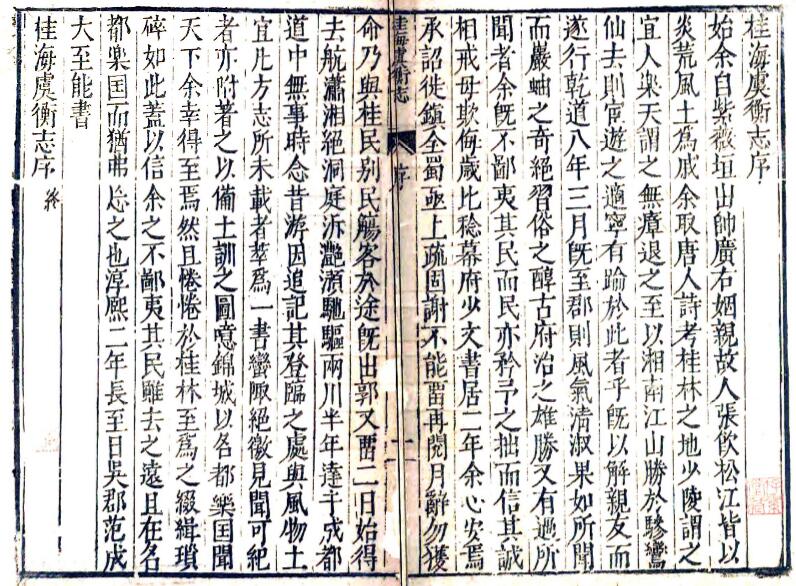 桂海虞衡志序
始余自紫薇垣出帥廣右姻親故人張飲松江皆以
炎荒風土爲戚余取唐人詩考桂林之地少陵謂之
宜人樂天謂之無瘴退之至以湘南江山勝於驂鸞
仙去則宦遊之適寧有踰於此者乎旣以解親友而
遂行乾道八年三月旣至郡則風氣清淑果如所聞
而巖岫之奇絕習俗之醇古府治之雄勝又有過所
聞者余旣不鄙夷其民而民亦矜予之拙而信其誠
相戒毋欺侮歲比稔幕府少文書居二年余心安焉
承詔徙鎮全蜀亟上疏固謝不能畱再閱月辭勿獲
桂海虞衡志
序
一
命乃與桂民别民觴客於途旣出郭又畱二日始得
去航瀟湘絕洞庭泝灔澦馳驅兩川半年達于成都
道中無事時念昔游因追記其登臨之處與風物土
宜凡方志所未載者萃爲一書蠻陬絕徼見聞可紀
者亦附著之以備土訓之圖噫錦城以名都樂国聞
天下余幸得至焉然且惓惓於桂林至爲之綴緝瑣
碎如此蓋以信余之不鄙夷其民雖去之遠且在名
都樂国而猶弗忘之也淳熙二年長至日吳郡范成
大至能書
桂海虞衡志序 終